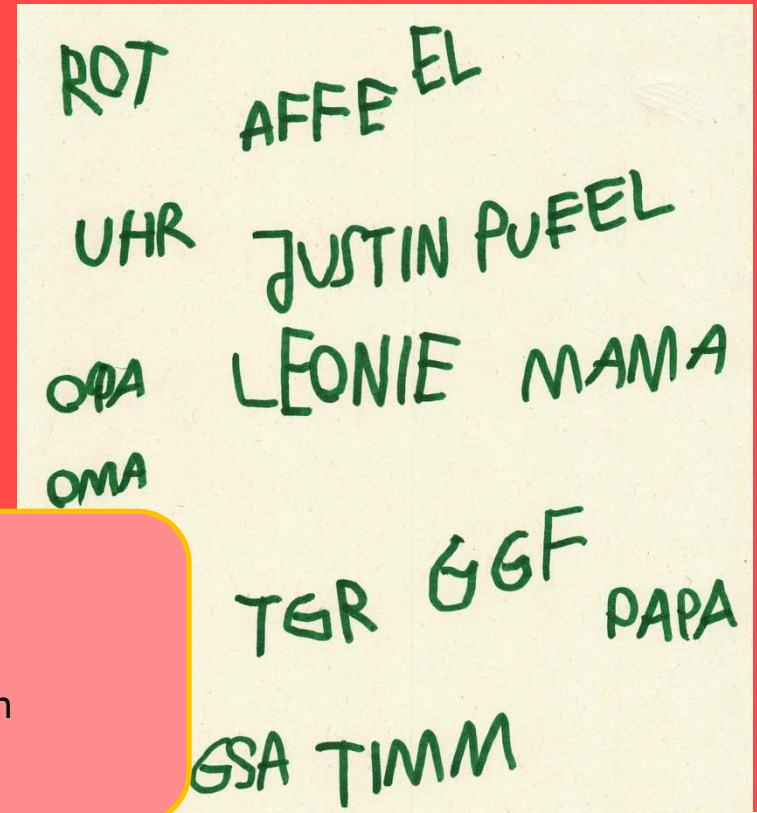 ROT AFFE EL
UHR JUSTIN PUFEL
OPA LEONIE MAMA
OMA
TGR GGF PAPA
n
GSA TIMM